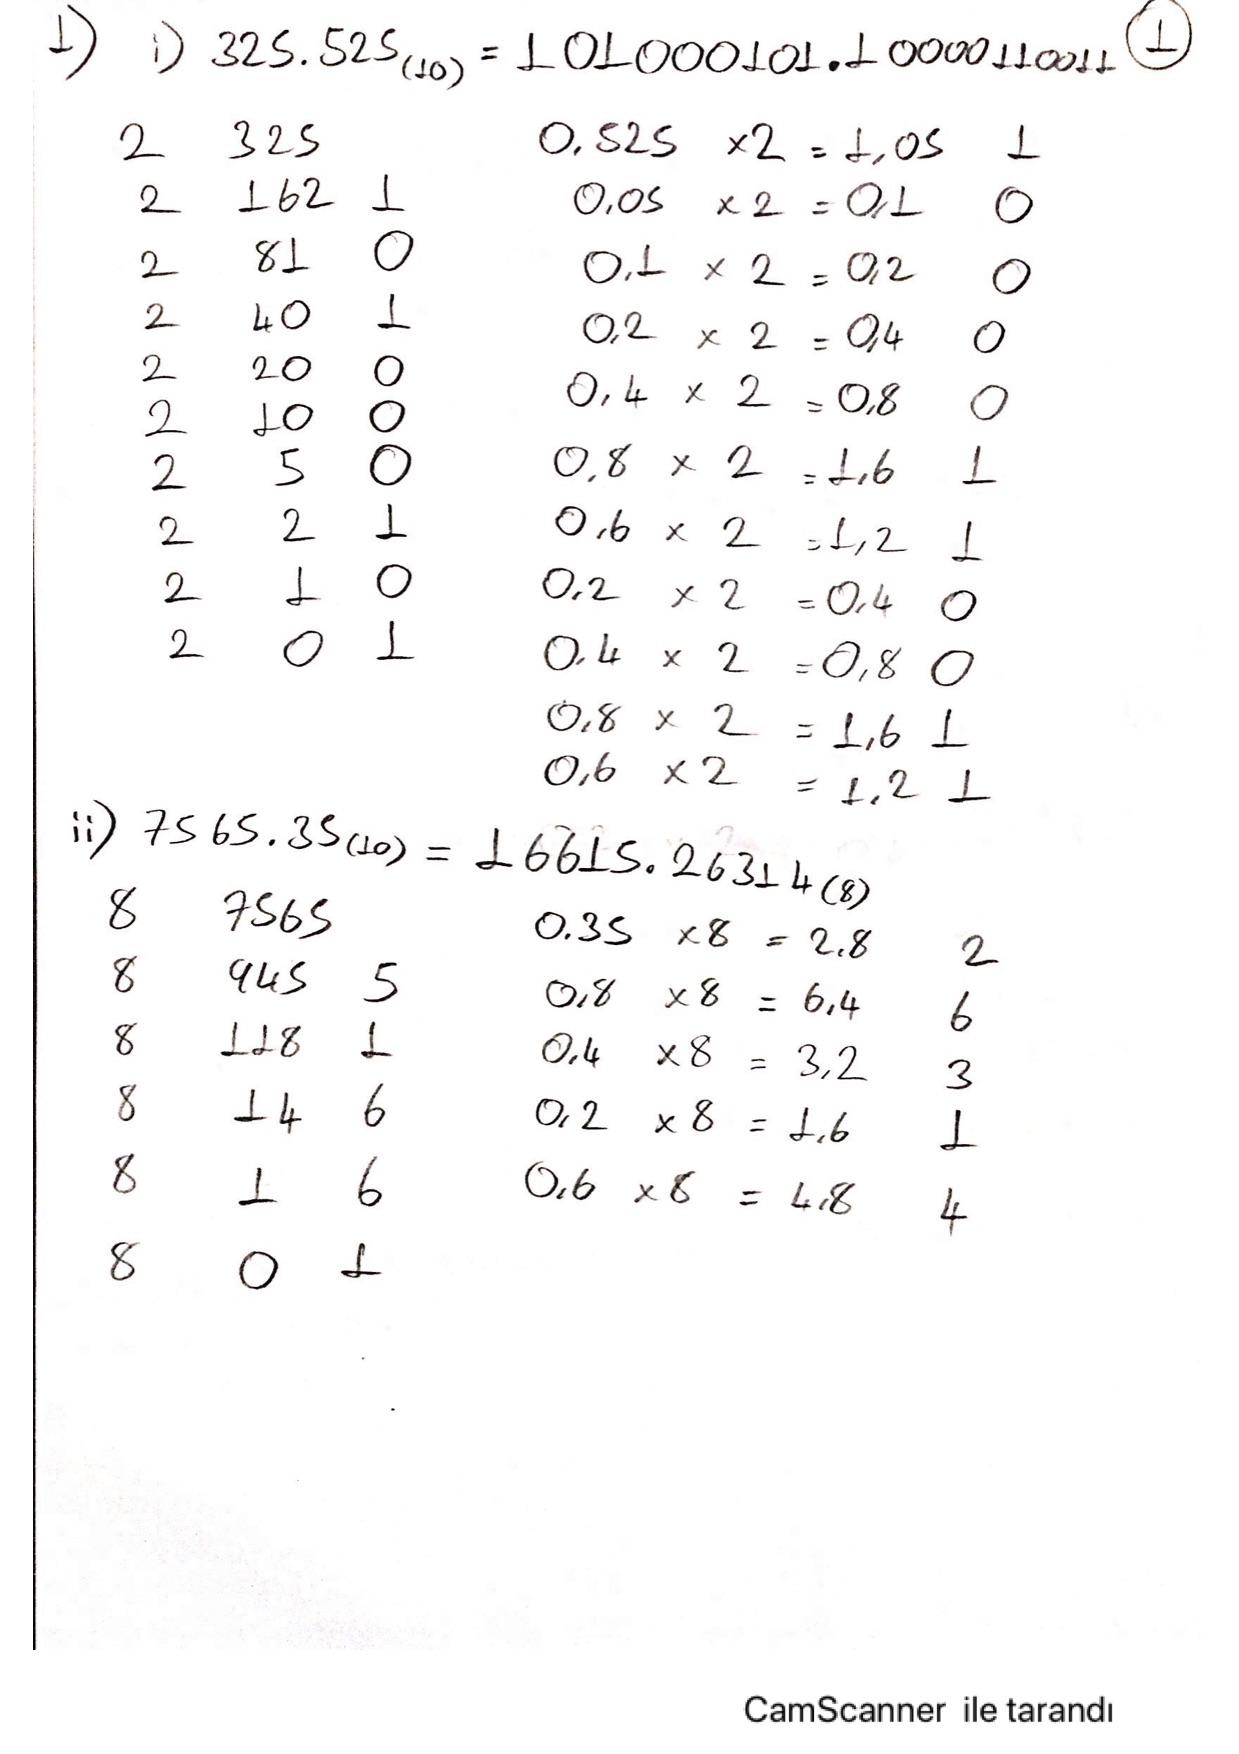 1) i) 325.525(10) = 101000101.10000110011 1
2 325 0.525 x2 = 1,05 1
2 162 1 0.05 x 2 = 0,1 0
2 81 0 0.1 x 2 = 0,2 0
2 40 1 0,2 x 2 = 0,4 0
2 20 0 0,4 x 2 = 0,8 0
2 10 0
2 5 0 0,8 x 2 = 1,6 1
2 2 1 0,6 x 2 = 1,2 1
2 1 0 0.2 x 2 = 0.4 0
2 0 1 0.4 x 2 = 0,8 0
0,8 x 2 = 1,6 1
0,6 x2 = 1,2 1
ii) 7565.35(10) = 16615.26314(8)
8 7565 0.35 x8 = 2.8 2
8 945 5 0,8 x8 = 6,4 6
8 118 1 0,4 x8 = 3,2 3
8 14 6 0,2 x8 = 1,6 1
8 1 6 0,6 x8 = 4,8 4
8 0 1
CamScanner ile tarandı